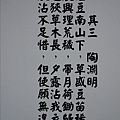 其三　陶淵明
豆南山下，草盛豆苗稀
興理荒穢，帶月荷鋤
狹草木長，夕露沾我
不足惜，但使願無